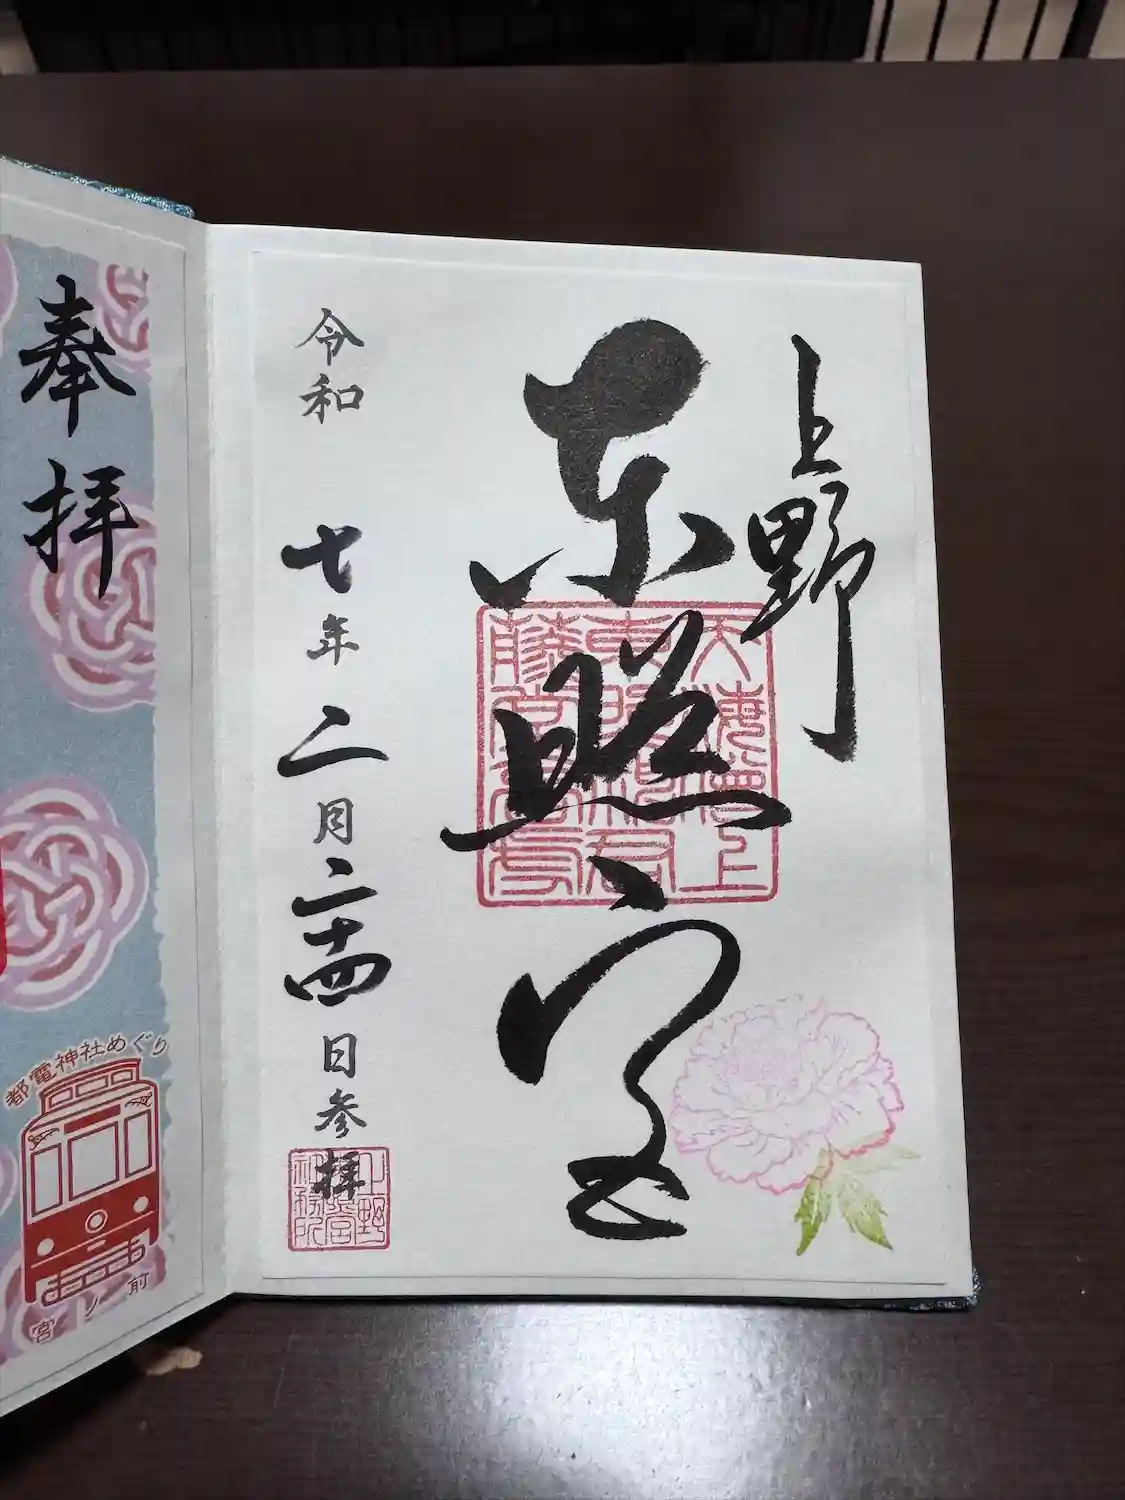 上野
東照宮
天海僧正
東照神君
藤堂高虎
令和 七年 二月二十四日参拝
上野
東照宮
社務所
奉拝
都電神社めぐり
宮ノ前